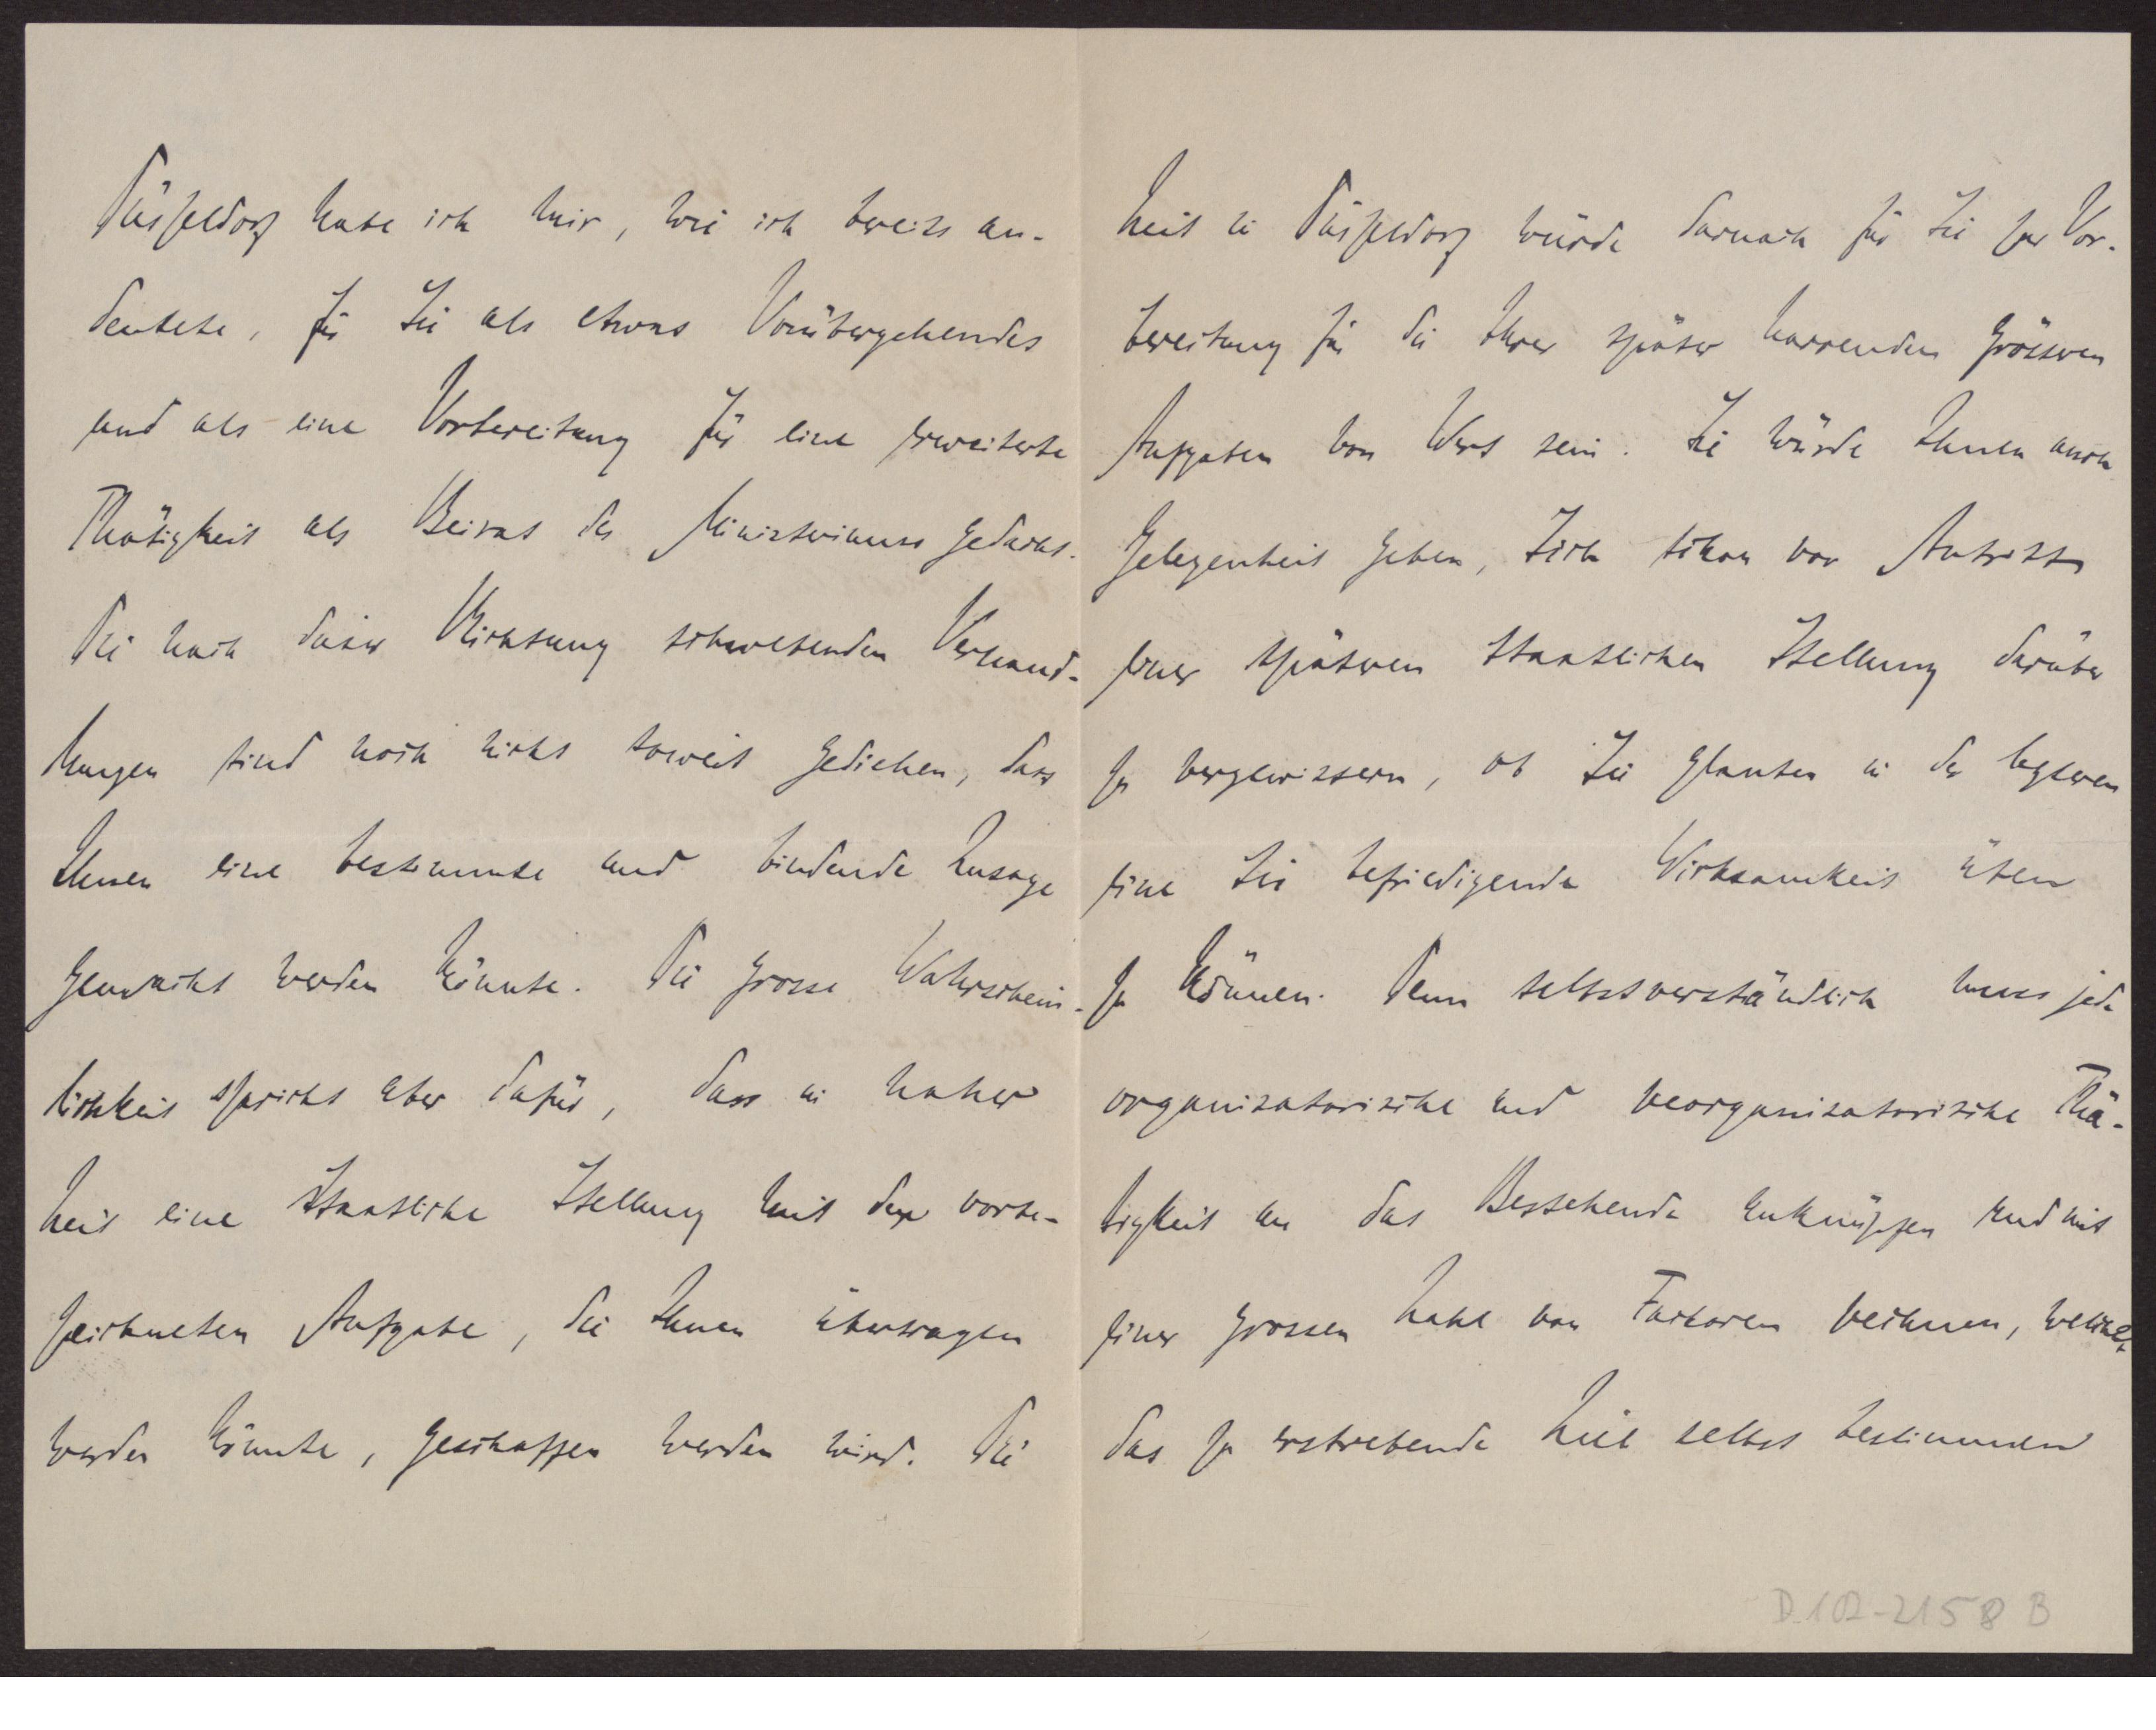 Düsseldorf habe ich mir, wie ich bereits an-
deutete, für Sie als etwas Vorübergehendes
und als eine Vorbereitung für eine erweiterte
Thätigkeit als Beirat des Ministeriums gedacht.
Die nach dieser Richtung schwebenden Verhand-
lungen sind noch nicht soweit gediehen, dass
Ihnen eine bestimmte und bindende Zusage
gemacht werden könnte. Die grosse Wahrschein-
lichkeit spricht aber dafür, dass in naher
Zeit eine staatliche Stellung mit der vorbe-
zeichneten Aufgabe, die Ihnen übertragen
werden könnte, geschaffen werden wird. Die
Zeit in Düsseldorf würde darnach für Sie zur Vor-
bereitung für die Ihrer später harrenden grösseren
Aufgaben von Wert sein. Sie würde Ihnen auch
Gelegenheit geben, Sich schon vor Antritt
einer späteren staatlichen Stellung darüber
zu vergewissern, ob Sie glauben in der letzteren
eine Sie befriedigende Wirksamkeit üben
zu können. Denn selbstverständlich muss jede
organisatorische und reorganisatorische Thä-
tigkeit an das Bestehende anknüpfen und mit
einer grossen Zahl von Factoren rechnen, welche
das zu erstrebende Ziel selbst bestimmen
D.102-2158 B